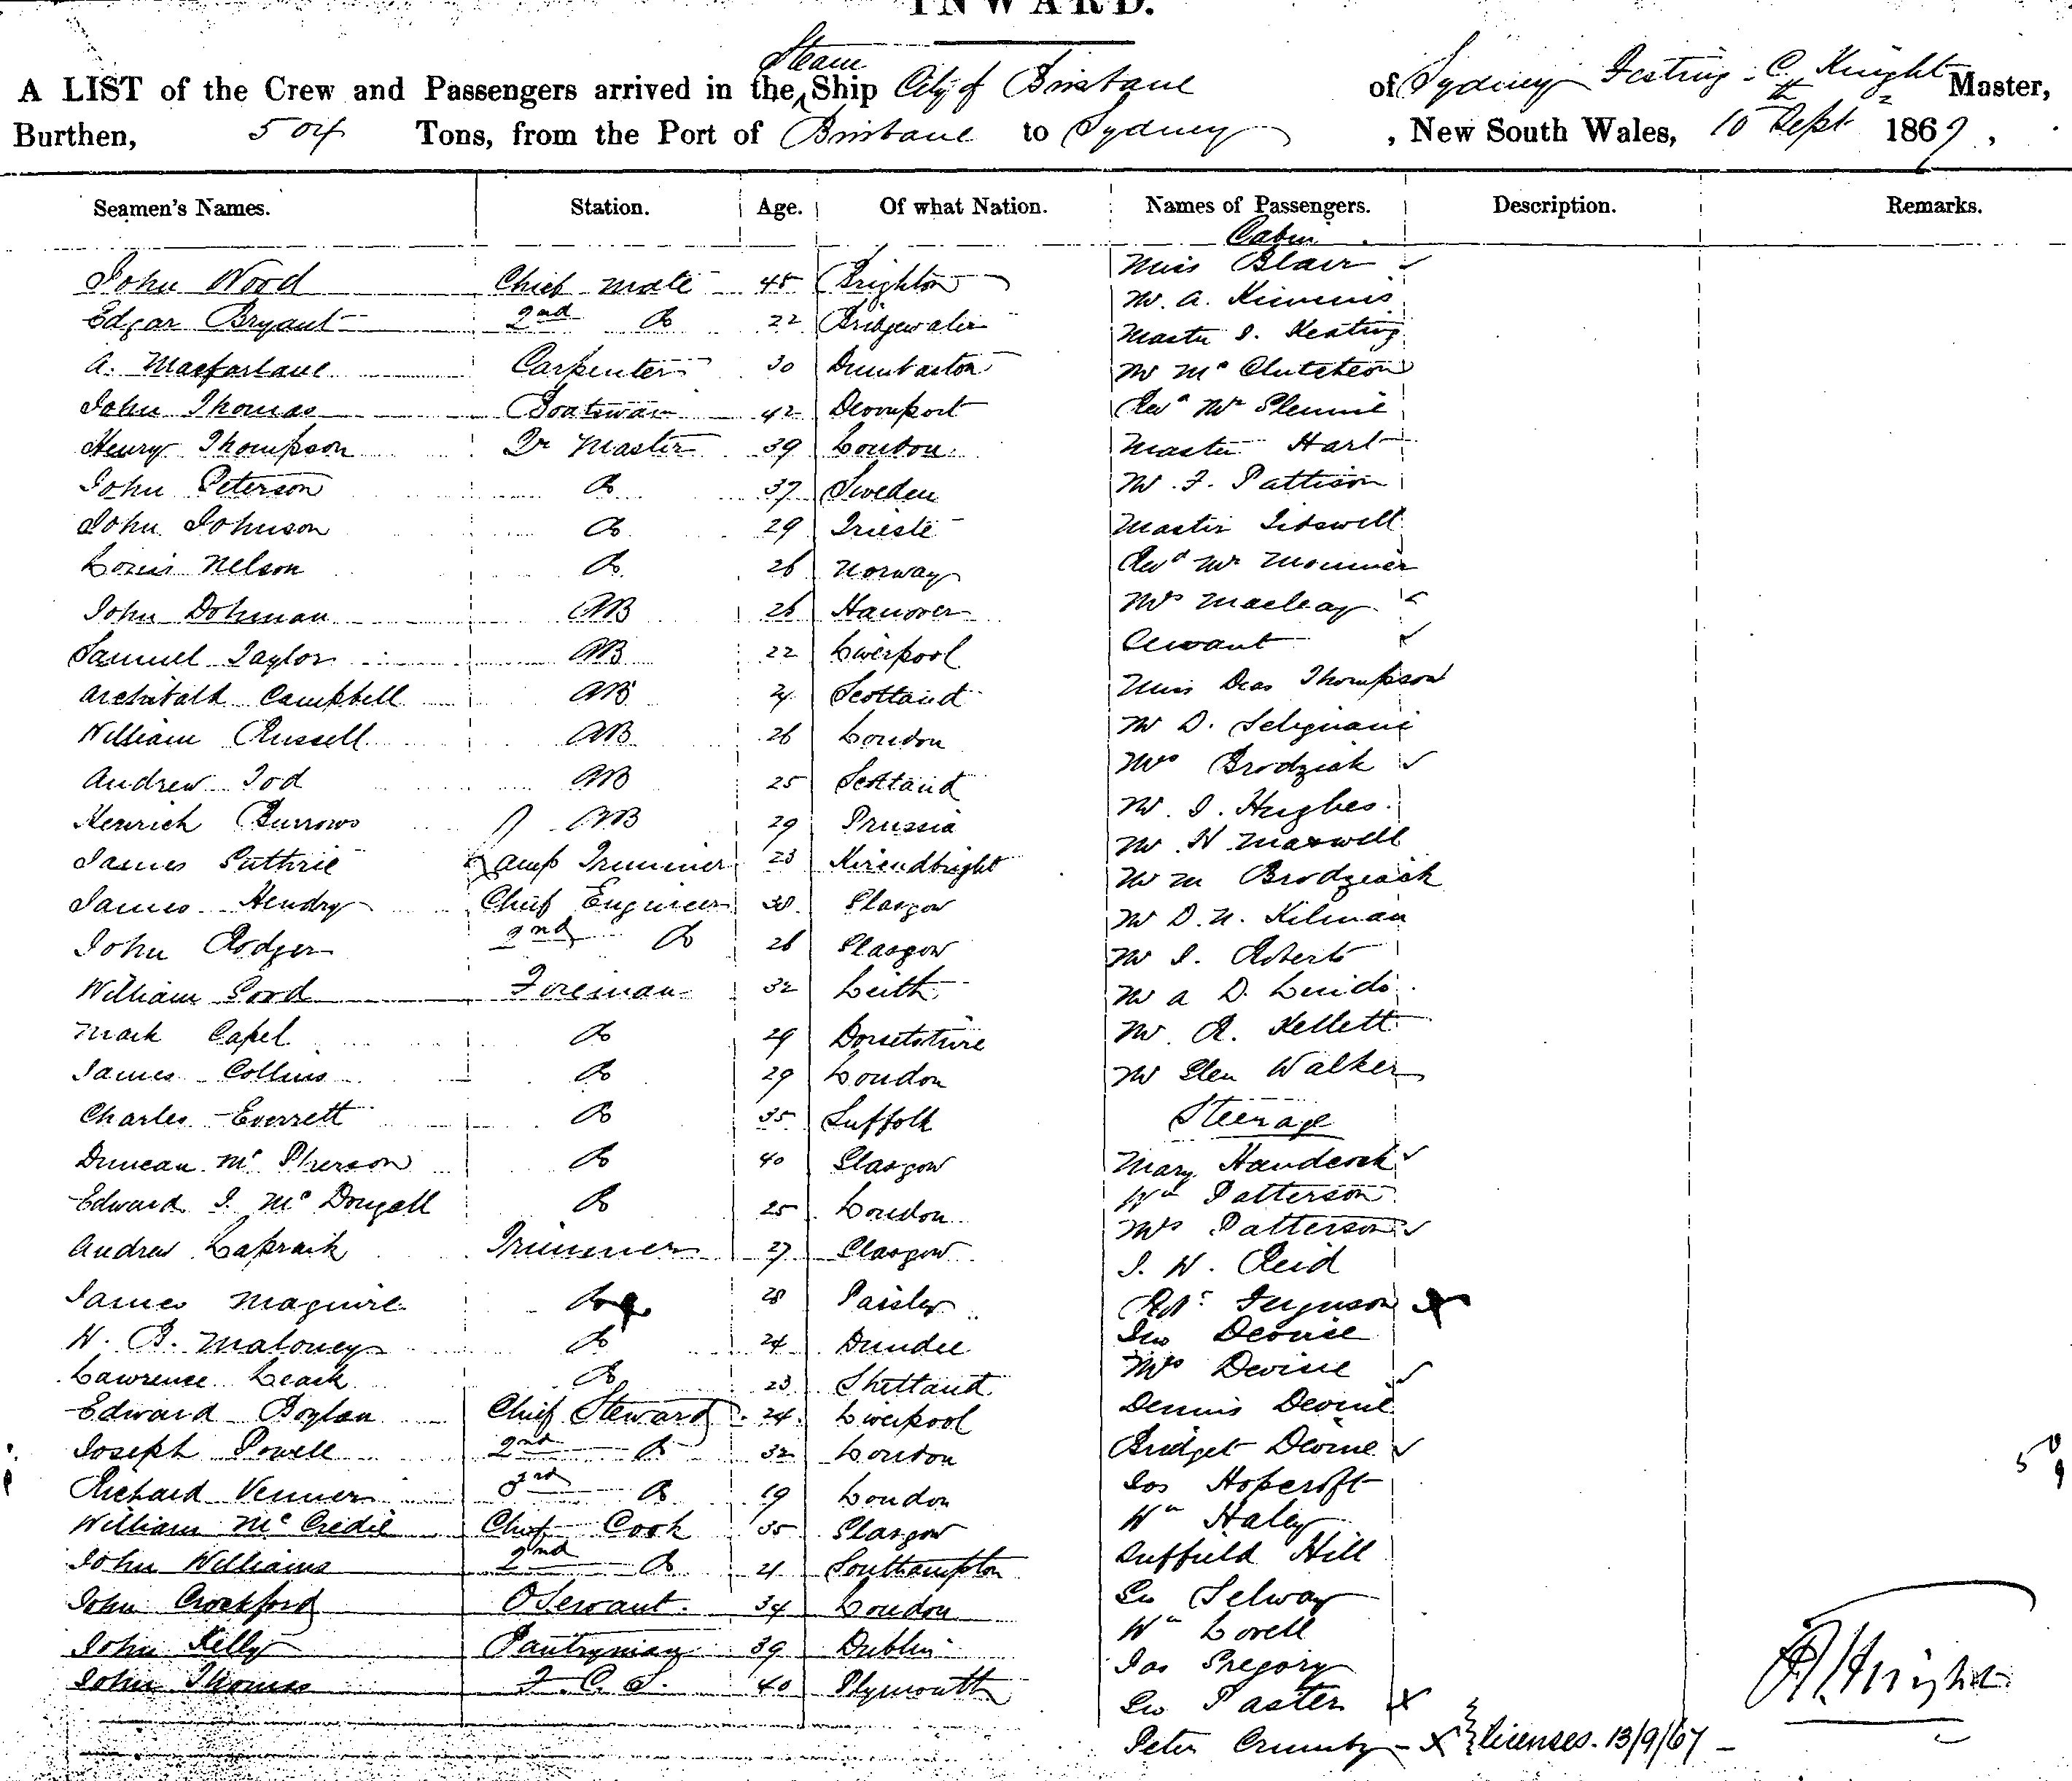 INWARD.
A LIST of the Crew and Passengers arrived in the Steam Ship City of Brisbane of Sydney C. Knight Master,
Burthen, 504 Tons, from the Port of Brisbane to Sydney, New South Wales, 10th Sept 1867,
Seamen's Names. Station. Age. Of what Nation. Names of Passengers. Description. Remarks.
Cabin
John Wood Chief Mate 45 Brighton Miss Blair
Edgar Bryant 2nd Do 22 Bridgewater Mr A.
A. Macfarlane Carpenter 30 Dumbarton Master J. Keating
John Thomas Boatswain 42 Devonport Mr McClutcheon
Henry Thompson Qr Master 39 London Revd Mr Glennie
John Peterson Do 37 Sweden Master Hart
John Johnson Do 29 Trieste Mr F. Pattison
Louis Nelson Do 26 Norway Master Tidswell
John Dohman AB 26 Hanover Revd Mr
Samuel Taylor AB 22 Liverpool Mrs Macleay
Archibald Campbell AB Scotland Servant
William Russell AB 26 London Miss Deas Thompson
Andrew Tod AB 25 Scotland Mr D. Seligmann
Henrich Burrows AB 29 Prussia Mrs Brodziak
James Guthrie Lamp Trimmer 23 Kircudbright Mr J. Hughes
James Hendry Chief Engineer 38 Glasgow Mr H Maxwell
John Rodger 2nd Do 26 Glasgow Mr M Brodziack
William Gord Fireman 32 Leith Mr D. N. Kilman
Mark Capel Do 29 Dorsetshire Mr J. Roberts
James Collins Do 29 London Mr A D.
Charles Everrett Do 35 Suffolk Mr R. Kellett
Duncan McPherson Do 40 Glasgow Mr Glen Walker
Steerage
Edward J. McDougall Do 25 London Mary Handcock
Andrew Lapraik Trimmer 27 Glasgow Wm Patterson
James Maguire Do 28 Paisley Mrs Patterson
W. B. Maloney Do 24 Dundee J. W. Reid
Lawrence Leask Do 23 Shetland Robt Ferguson
Edward Boylan Chief Steward 24 Liverpool Geo Devine
Joseph Powell 2nd Do 32 London Mrs Devine
Richard Venner 3rd Do 19 London Dennis Devine
William McCredie Chief Cook 35 Glasgow Bridget Devine
John Williams 2nd Do 21 Southampton Jos Hopcroft
John Crockford O Servant 34 London Wm Haley
John Kelly Pantryman 39 Dublin Duffield Hill
John Thomas F. C. S. 40 Plymouth Geo Selway
Wm Lovell
Jas Gregory
Geo Paster
Peter Crumby licenses. 13/9/67
Knight